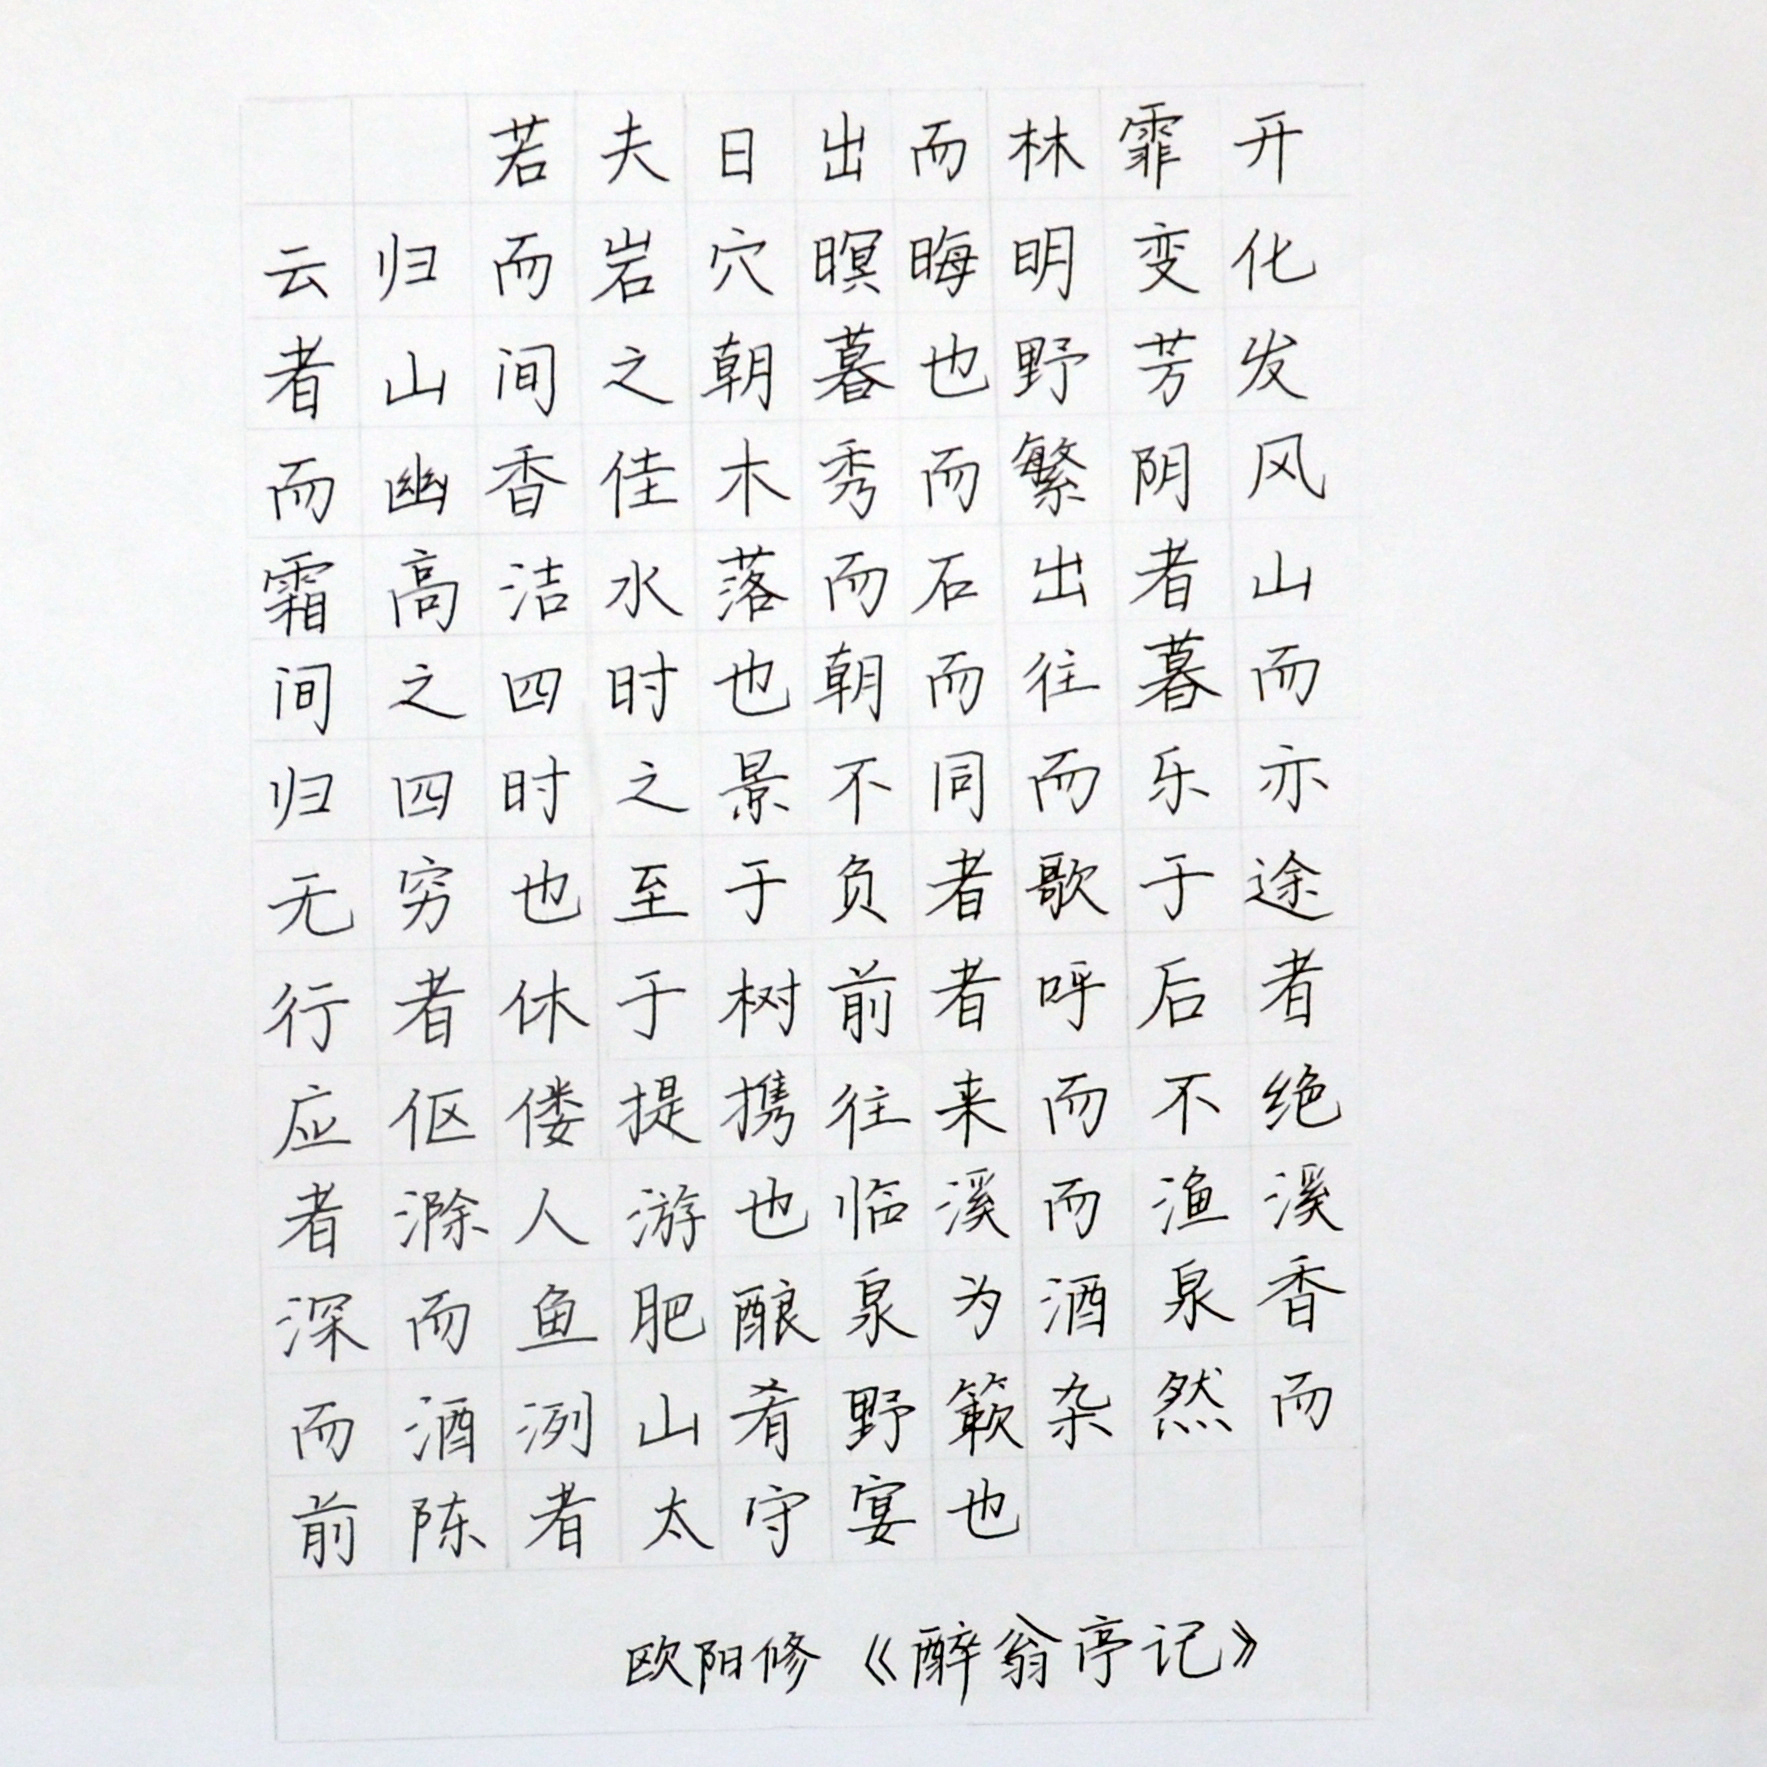 若夫日出而林霏开
云归而岩穴暝晦明变化
者山间之朝暮也野芳发
而幽香佳木秀而繁阴风
霜高洁水落而石出者山
间之四时也朝而往暮而
归四时之景不同而乐亦
无穷也至于负者歌于途
行者休于树前者呼后者
应伛偻提携往来而不绝
者滁人游也临溪而渔溪
深而鱼肥酿泉为酒泉香
而酒洌山肴野簌杂然而
前陈者太守宴也
欧阳修《醉翁亭记》